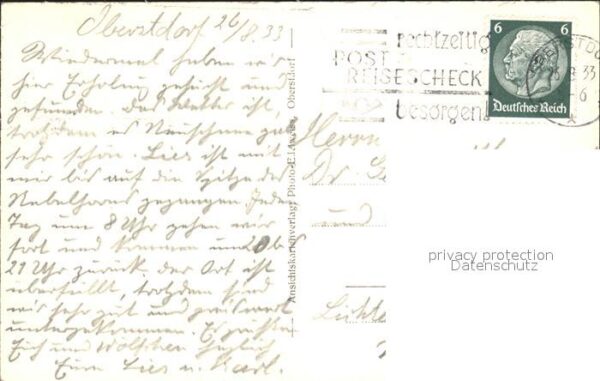 Oberstdorf 26/8.33
Wiedermal haben wir
hier Erholung gesucht und
gefunden. Das Wetter ist
trotzdem es Neuschnee gab
sehr schön. Lies ist mit
mir bis auf die Spitze des
Nebelhorns gegangen. Jeden
Tag um 8 Uhr gehen wir
fort und kommen um 20 bis
21 Uhr zurück. Der Ort ist
überfüllt, trotzdem sind
wir sehr gut und preiswert
untergekommen. Es grüßen
Eich und Wölfchen herzlich
Eure Lies u. Karl.
Ansichtskartenverlag Photo-E. Oberstdorf
rechtzeitig
POST
REISESCHECK
besorgen!
6 6
Deutsches Reich
OBERSTDO
33
6
Herrn
Dr.
und
privacy protection
Datenschutz